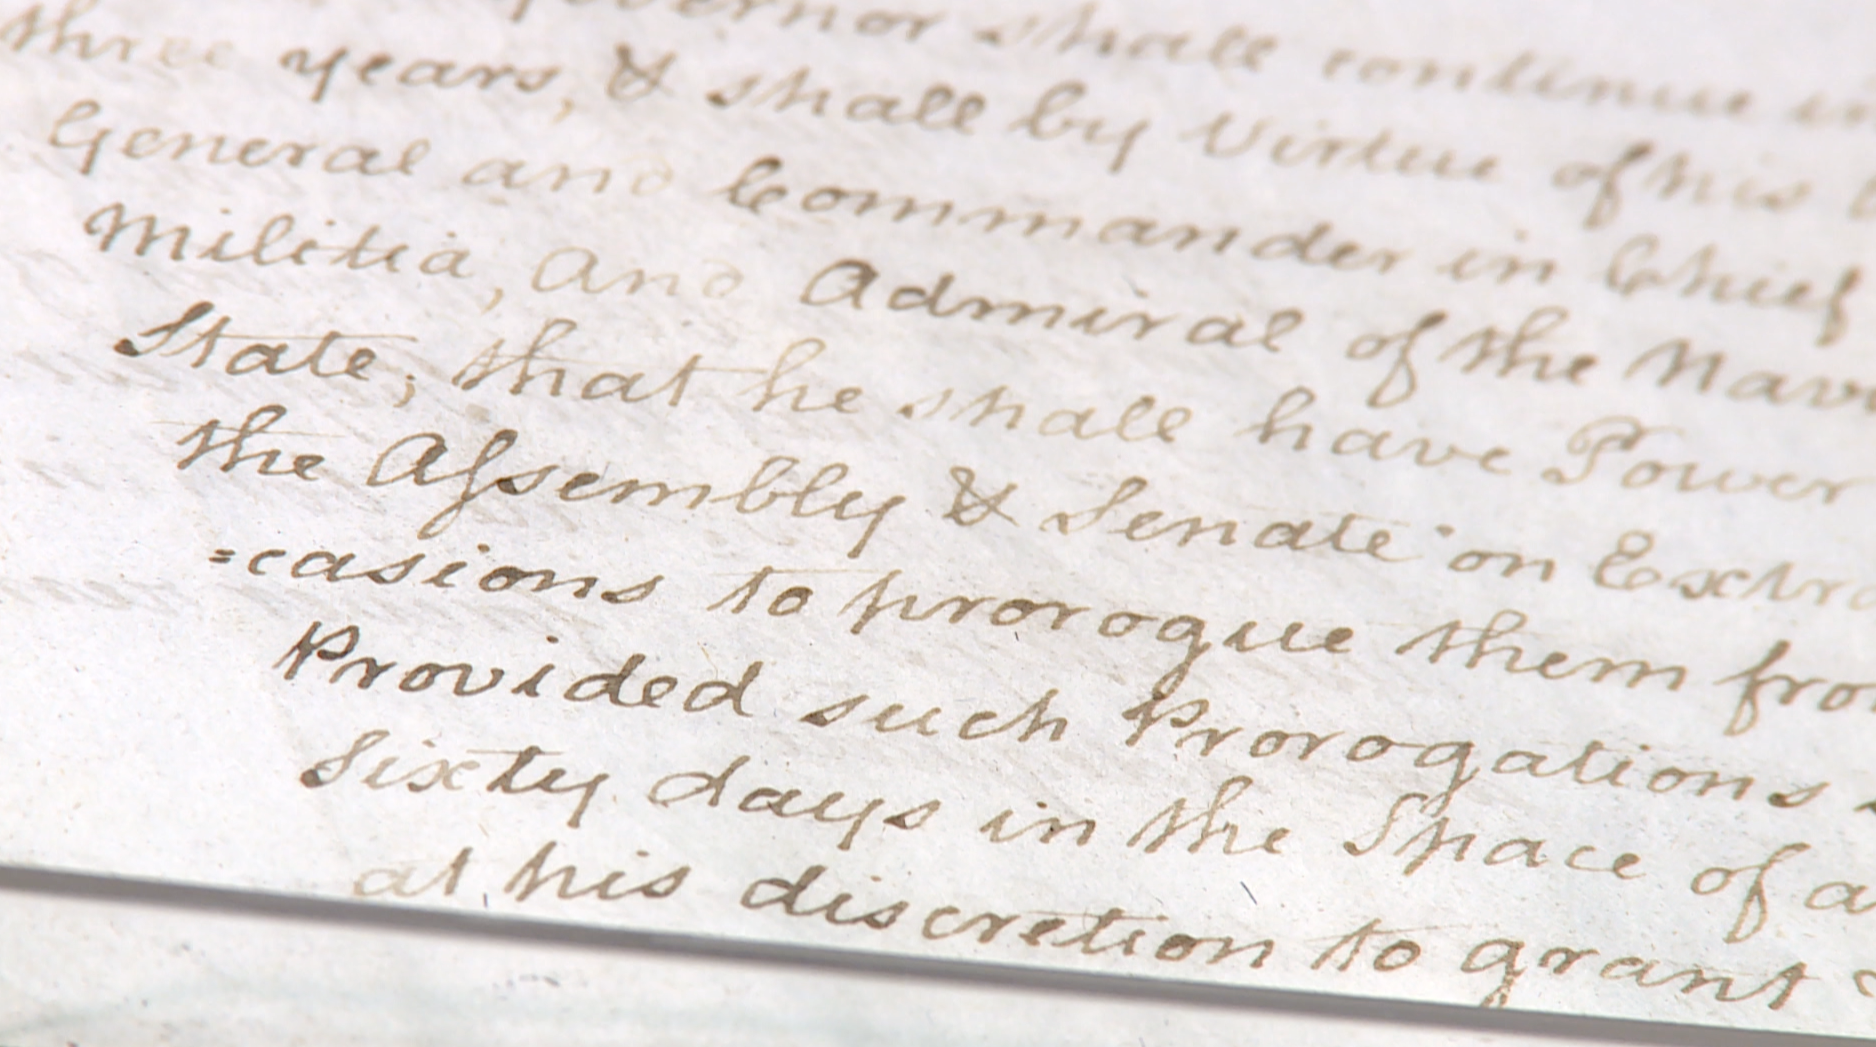 Governor shall continue in
three years, & shall by Virtue of his
General and Commander in Chief
Militia, and Admiral of the Nav
State; that he shall have Power
the Assembly & Senate on Extra
=casions to prorogue them fro
Provided such Prorogations
Sixty days in the Space of a
at his discretion to grant